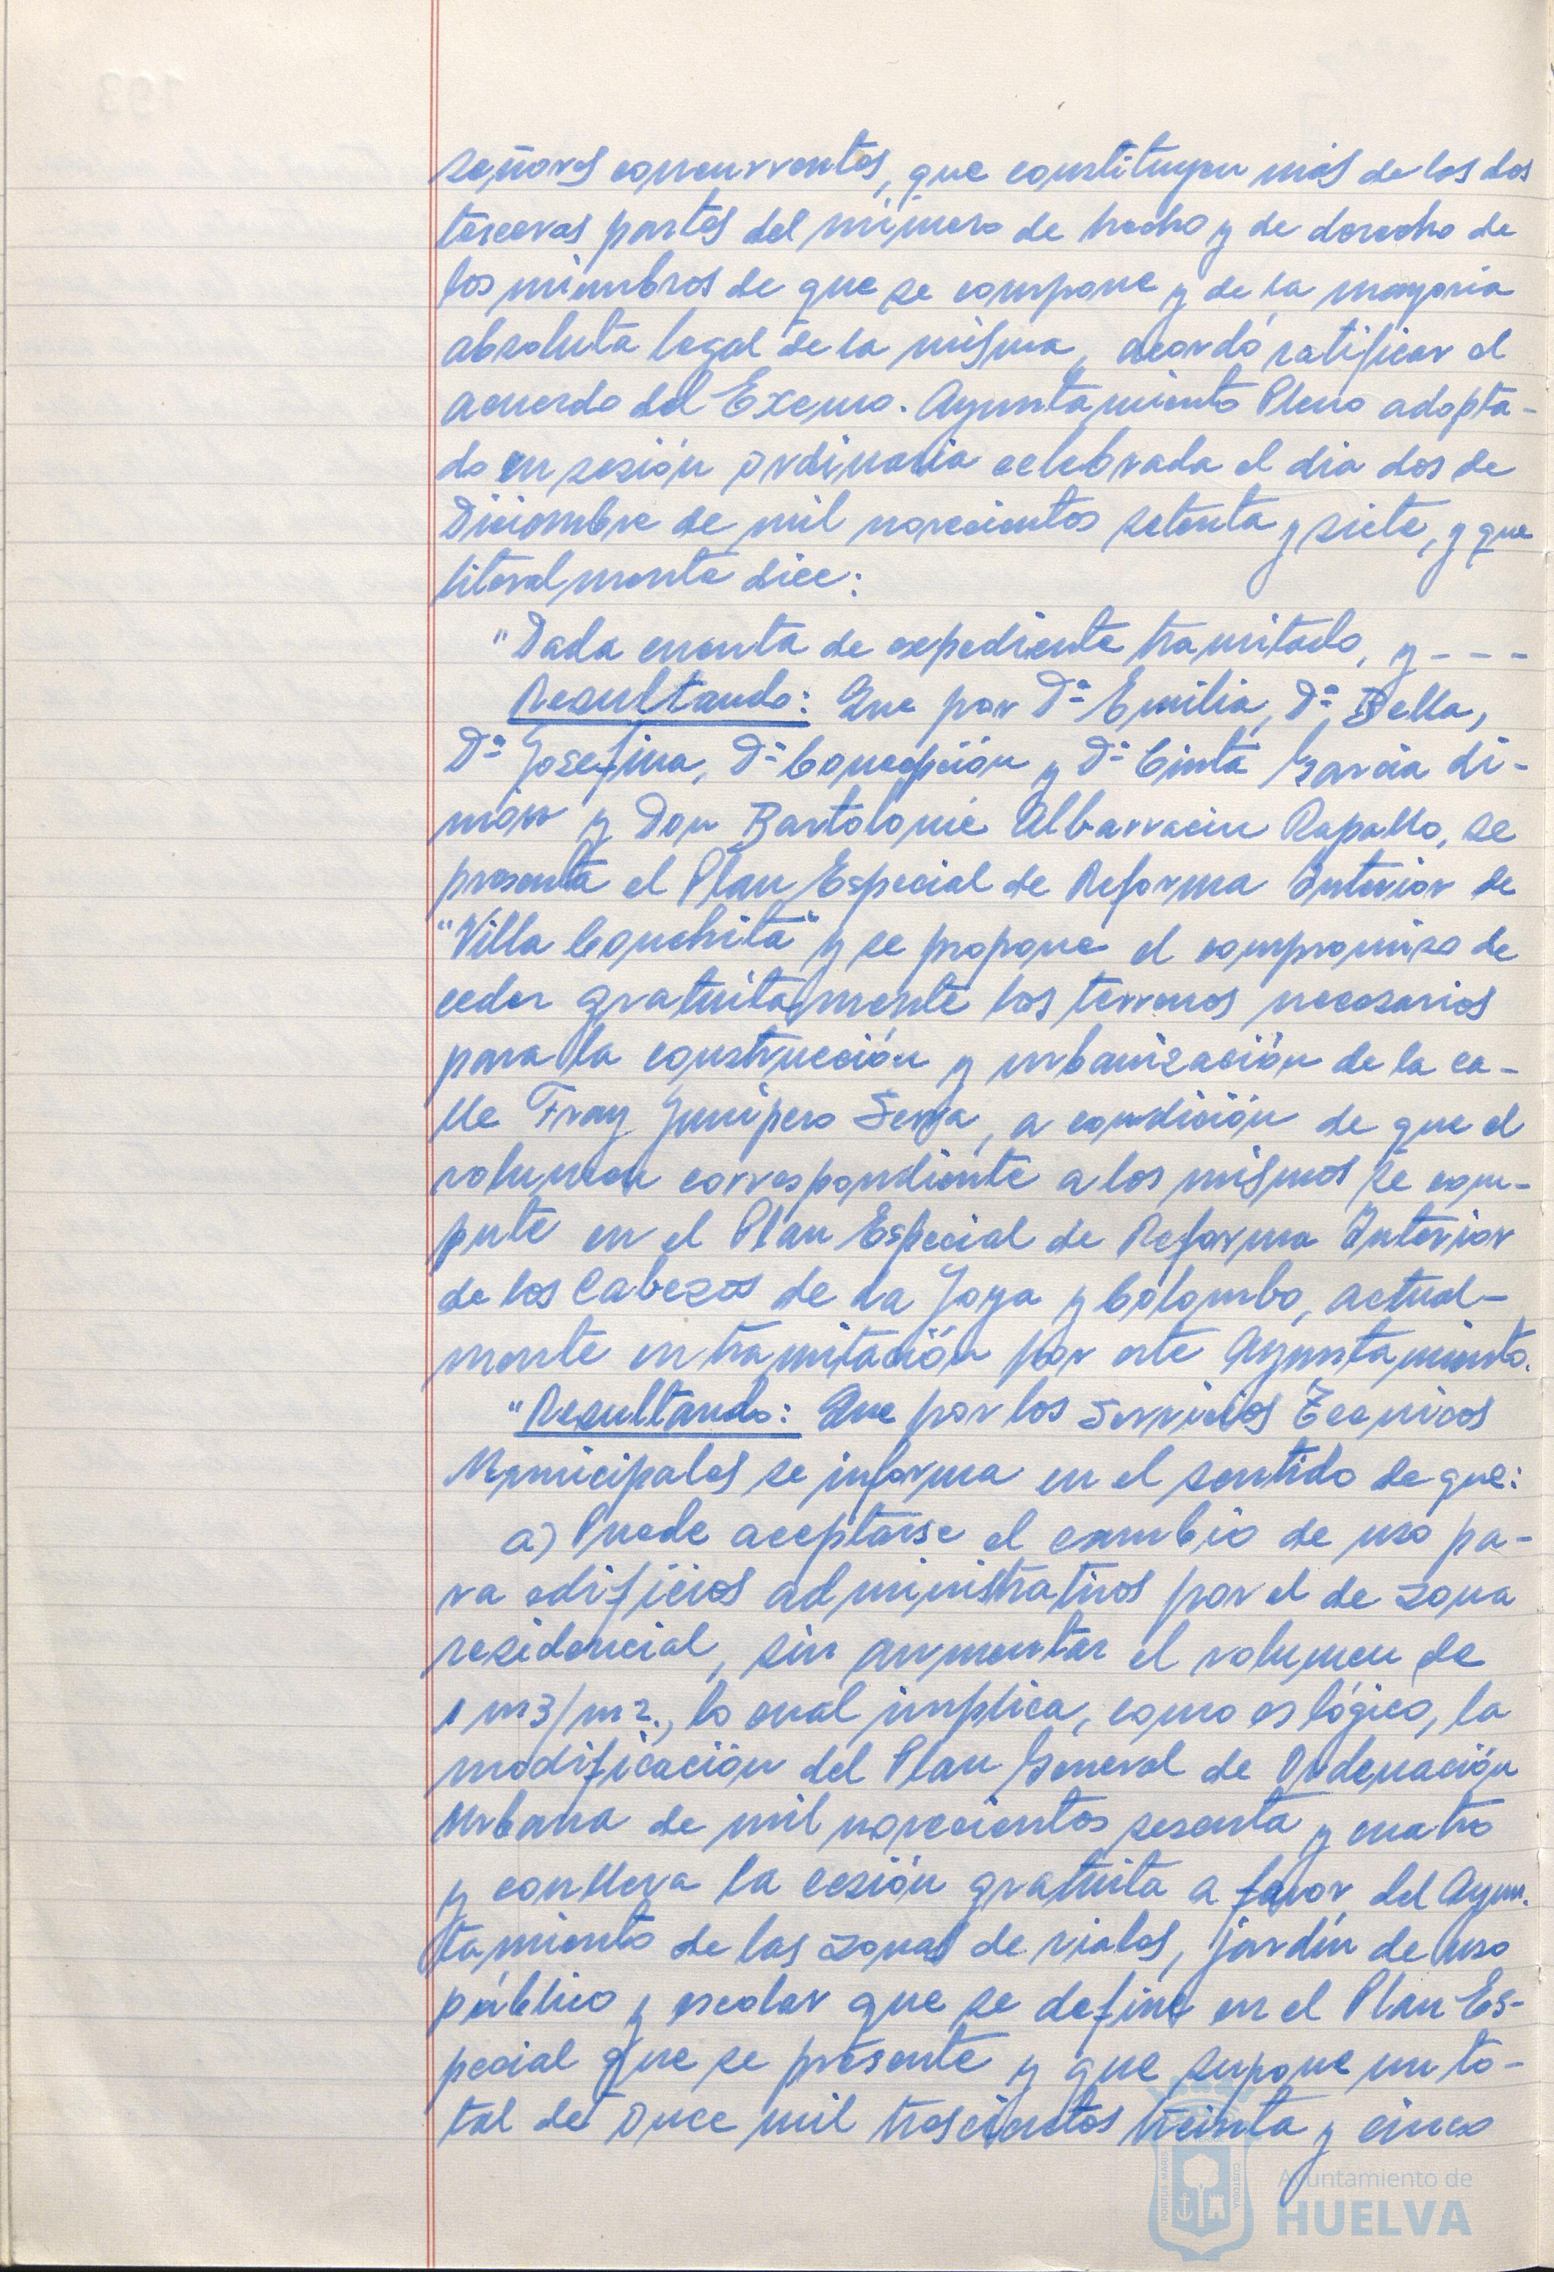 señores concurrentes, que constituyen más de las dos
terceras partes del número de hecho y de derecho de
los miembros de que se compone y de la mayoría
absoluta legal de la misma, acordó ratificar el
acuerdo del Excmo. Ayuntamiento Pleno adopta-
do en sesión ordinaria celebrada el día dos de
Diciembre de mil novecientos setenta y siete, y que
literalmente dice:
"Dada cuenta de expediente tramitado, y - - -
Resultando: Que por Dª Emilia, Dª Bella,
Dª Josefina, Dª Concepción y Dª Cinta García di-
món y Don Bartolomé Albarracin Rapallo, se
presenta el Plan Especial de Reforma Interior de
"Villa Conchita" y se propone el compromiso de
ceder gratuitamente los terrenos necesarios
para la construcción y urbanización de la ca-
lle Fray Junípero Serra, a condición de que el
volumen correspondiente a los mismos se com-
pute en el Plan Especial de Reforma Interior
de los Cabezos de La Joya y Colombo, actual-
mente en tramitación por este Ayuntamiento.
"Resultando: Que por los Servicios Técnicos
Municipales se informa en el sentido de que:
a) Puede aceptarse el cambio de uso pa-
ra edificios administrativos por el de zona
residencial, sin aumentar el volumen de
1 m3/m2., lo cual implica, como es lógico, la
modificación del Plan General de Ordenación
Urbana de mil novecientos sesenta y cuatro
y conlleva la cesión gratuita a favor del Ayun-
tamiento de las zonas de viales, jardín de uso
público y escolar que se define en el Plan Es-
pecial que se presente y que supone un to-
tal de once mil trescientos treinta y cinco
PORTUS MARIS
CUSTODIA
Ayuntamiento de
HUELVA